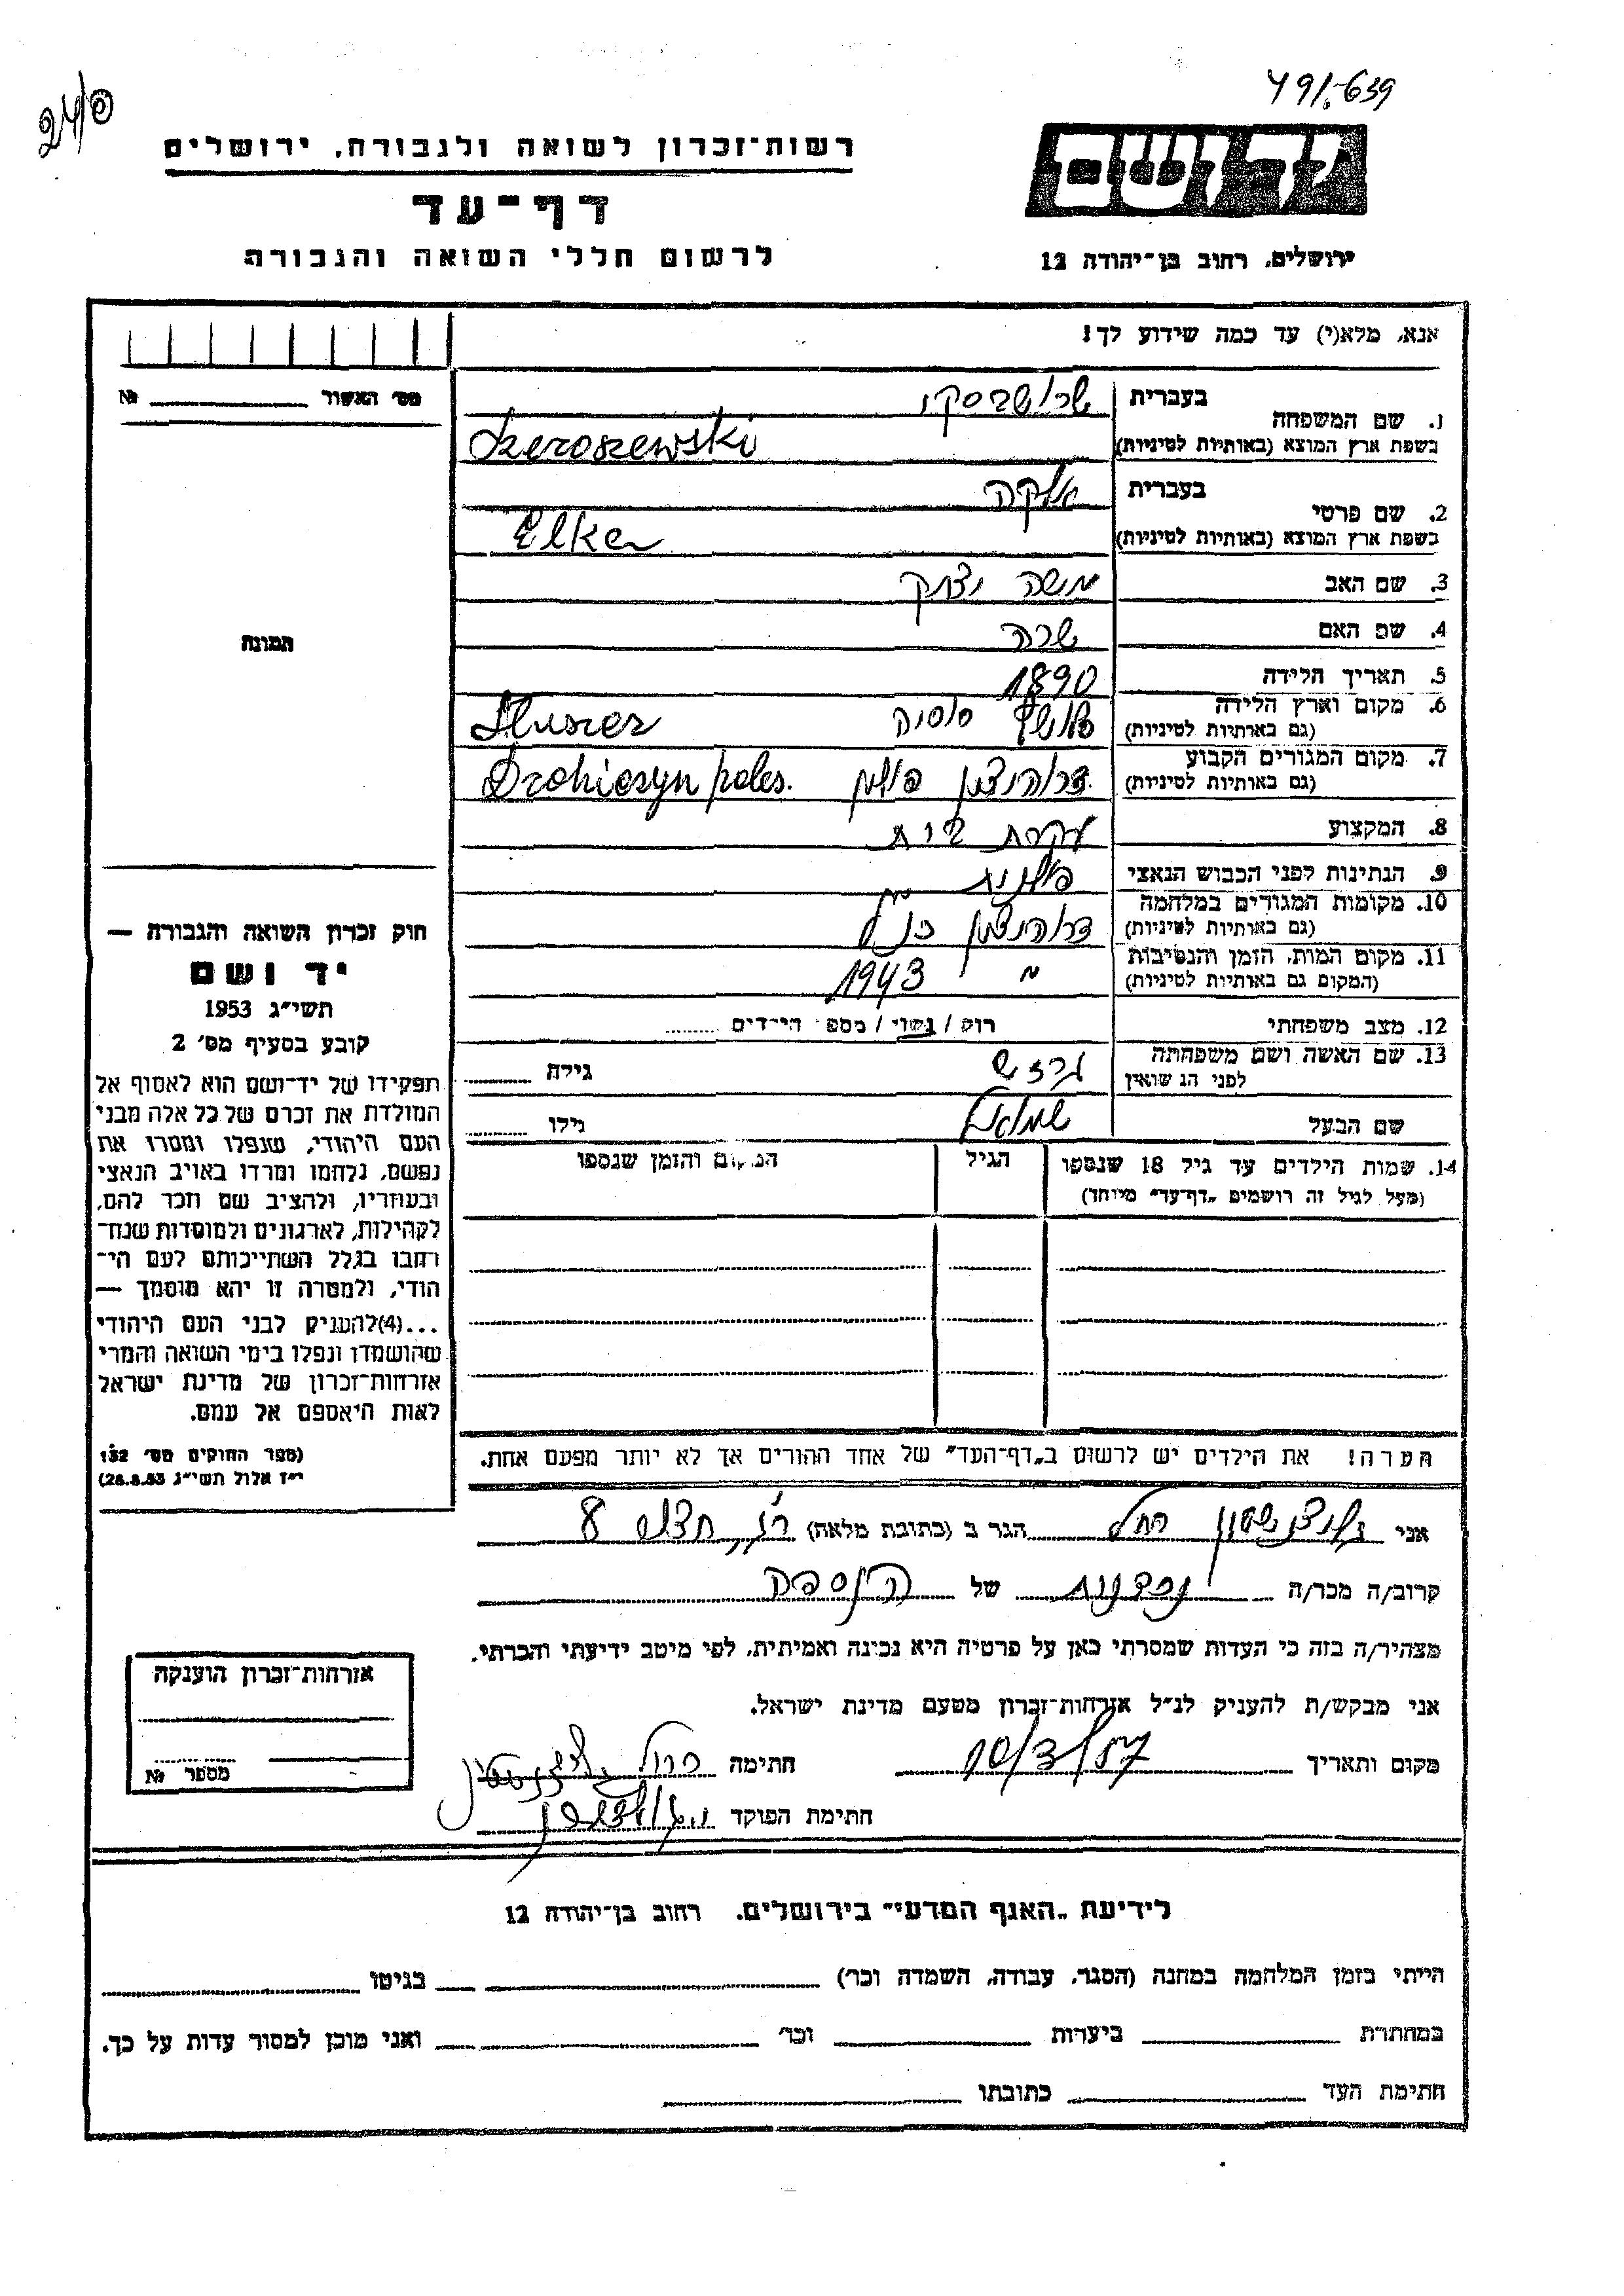 491/639
24/פ
רשות־זכרון לשואה ולגבורה, ירושלים
דף־עד
לרשום חללי השואה והגבורה
יד ושם
ירושלים, רחוב בן־יהודה 12
אנא, מלא(י) עד כמה שידוע לך!
מס׳ האשור № 
תמונה
1. שם המשפחה
בעברית
בשפת ארץ המוצא (באותיות לטיניות)
2. שם פרטי
בעברית אלקה
בשפת ארץ המוצא (באותיות לטיניות) Elka
3. שם האב משה יצחק
4. שם האם שרה
5. תאריך הלידה 1890
6. מקום וארץ הלידה רוסיה
(גם באותיות לטיניות)
7. מקום המגורים הקבוע פולין Drohiczyn poles.
(גם באותיות לטיניות)
8. המקצוע עקרת בית
9. הנתינות לפני הכבוש הנאצי פולנית
10. מקומות המגורים במלחמה כנ״ל
(גם באותיות לטיניות)
11. מקום המות, הזמן והנסיבות 1943
(המקום גם באותיות לטיניות)
12. מצב משפחתי רווק / נשוי / מספר הילדים
13. שם האשה ושם משפחתה
לפני הנישואין גילה
שם הבעל שמואל גילו
14. שמות הילדים עד גיל 18 שנספו הגיל המקום והזמן שנספו
(מעל לגיל זה רושמים „דף־עד״ מיוחד)
הערה! את הילדים יש לרשום ב„דף־העד״ של אחד ההורים אך לא יותר מפעם אחת.
חוק זכרון השואה והגבורה —
יד ושם
תשי״ג 1953
קובע בסעיף מס׳ 2
תפקידו של יד־ושם הוא לאסוף אל
המולדת את זכרם של כל אלה מבני
העם היהודי, שנפלו ומסרו את
נפשם, נלחמו ומרדו באויב הנאצי
ובעוזריו, ולהציב שם וזכר להם,
לקהילות, לארגונים ולמוסדות שנח־
רבו בגלל השתייכותם לעם הי־
הודי, ולמטרה זו יהא מוסמך —
...(4) להעניק לבני העם היהודי
שהושמדו ונפלו בימי השואה והמרי
אזרחות־זכרון של מדינת ישראל
לאות היאספם אל עמם.
(ספר החוקים מס׳ 132
י״ז אלול תשי״ג 28.8.53)
אני רחל הגר ב (כתובת מלאה) 8
קרוב/ה מכר/ה של הנספה
מצהיר/ה בזה כי העדות שמסרתי כאן על פרטיה היא נכונה ואמיתית, לפי מיטב ידיעתי והכרתי.
אני מבקש/ת להעניק לנ״ל אזרחות־זכרון מטעם מדינת ישראל.
מקום ותאריך 10/3/57 חתימה רחל
חתימת הפוקד
אזרחות־זכרון הוענקה
מספר №
לידיעת „האגף המדעי״ בירושלים, רחוב בן־יהודה 12
הייתי בזמן המלחמה במחנה (הסגר, עבודה, השמדה וכו׳) בגיטו
במחתרת ביערות וכו׳ ואני מוכן למסור עדות על כך.
חתימת העד כתובתו